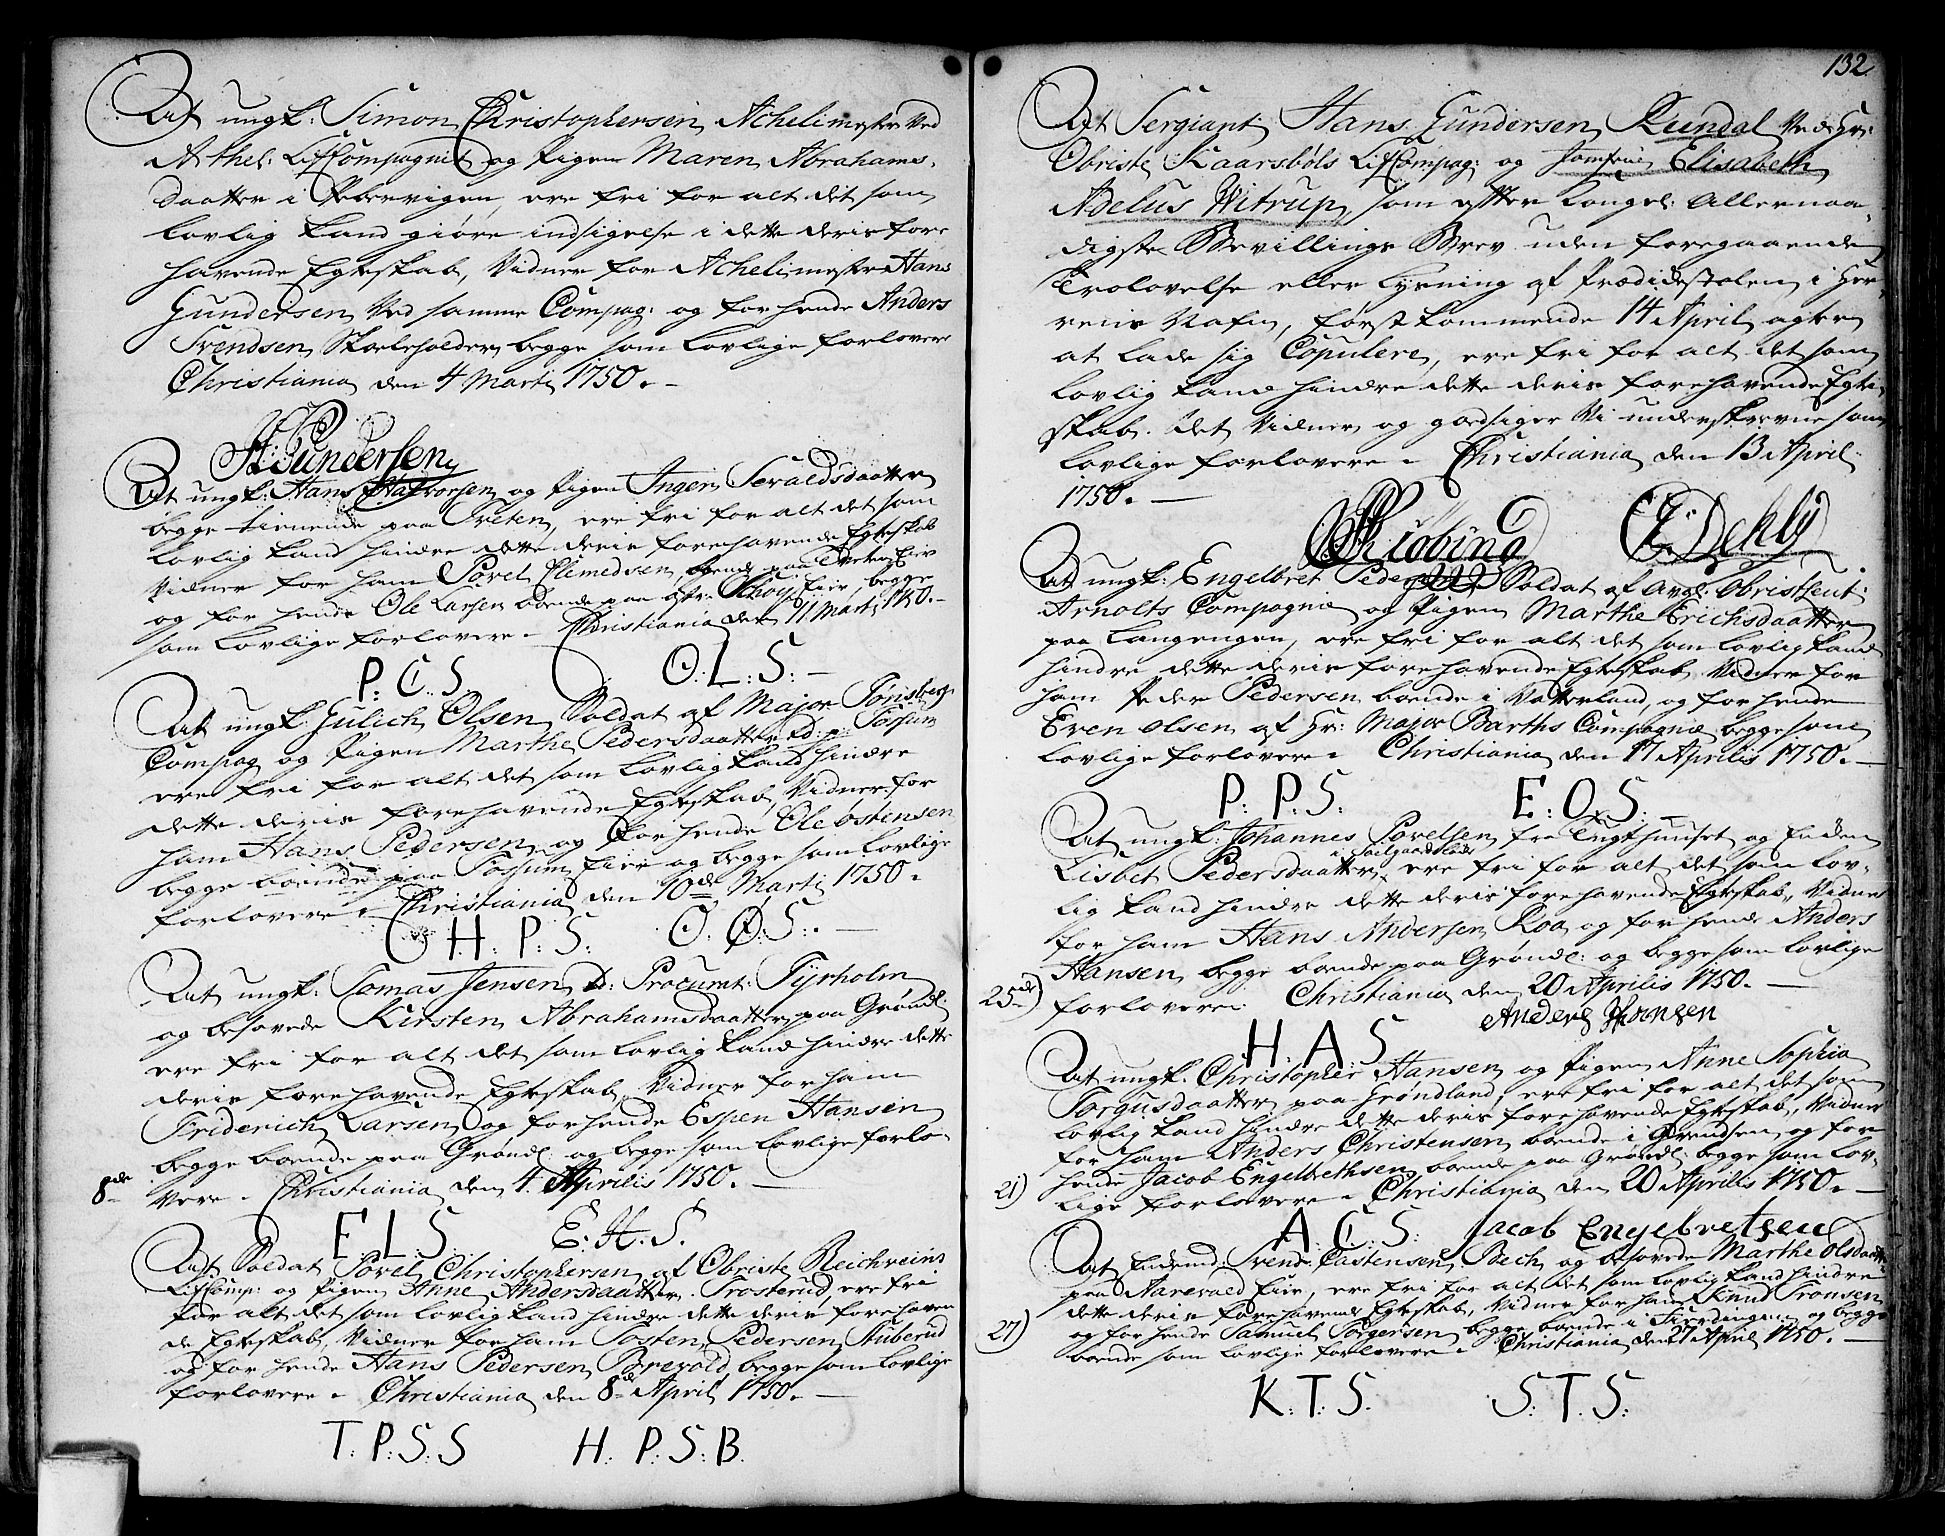 At ungk: Simon Christophersen, Achelimester ved
Arthel: Lif Compagniet og Pigen Maren Abrahams-
daatter i Pebervigen, ere fri for alt det som
lovlig kand giøre indsigelse i dette deris fore
havende Egteskab, Vidner for Achelimester Hans
Gundersen ved samme Compag: og for hende Anders
Svendsen begge som lovlige forlovere
Christiania den 4 Martj 1750.
H: Gundersen
At ungk: Hans Halvorsen og Pigen Inger Seraldsdaatter
begge tienende paa Tveten, ere fri for alt det som
lovlig kand hindre dette deris forehavende Egteskab
Vidner for ham Povel Clemedsen, boend paa Tveten Eier
og for hende Ole Larsen boende paa Eier, begge
som lovlige forlovere. Christiania den 11 Martj 1750.
P: C: S. O: L: S:
At ungk: Gulich Olsen, Soldat af Major Tønsbergs
Compag og Pigen Marthe Pedersdaatter ib: p: Fossum
ere fri for alt det som lovlig kand hindre
dette deris forehavende Egteskab, Vidner for
ham Hans Pedersen og for hende Ole Østensen
begge boende paa Fossum Eier og begge som lovlige
forlovere. Christiania den 10de Martj 1750.
H: P: S: O: Ø: S:
At ungk: Tomas Jensen, ib: Procurat: Tyrholm
og besovede Kirsten Abrahamsdaatter paa Grønd:
ere fri for alt det som lovlig kand hindre dette
deris forehavende Egteskab, Vidner for ham
Friderich Larsen og for hende Espen Hansen
begge boende paa Grønd: og begge som lovlige forlo-
8de vere. Christiania den 4. Aprilis 1750.
F: L: S. E: H: S.
At Soldat Povel Christophersen af Obriste Reichweins
Lif Comp: og Pigen Anne Andersdaatter Trosterud, ere fri
for alt det som lovlig kand hindre dette deris forehaven
de Egteskab, Vidner for ham Tosten Pedersen Stuberud
og for hende Hans Pedersen Brevold, begge som lovlige
forlovere. Christiania den 8de April 1750.
T: P: S: S H: P: S: B.
132
At Sergiant Hans Gundersen Rundal ved Hr:
Obriste Kaarsbøls Lif Compag: og Jomfrue Elisabeth
Adelus Witrup, som efter Kongel: Allernaa-
digste Bevillings Brev uden foregaaende
Trolovelse eller Lysning af Prædikestolen, i Her-
rens Nafn, først kommende 14 April agter
at lade sig Copulere, ere fri for alt det som
lovlig kand hindre dette deris forehavende Egte-
skab. Det Vidner og godsiger Vi underskrevne som
lovlige forlovere. Christiania den 13 April
1750.
Kiøbing Dehly
At ungk: Engelbret Pedersen Soldat af Obristleut:
Arnolts Compagnie og Pigen Marthe Erichsdaatter
paa Langengen, ere fri for alt det som lovlig kand
hindre dette deris forehavende Egteskab, Vidner for
ham Peder Pedersen boende i Vatterland, og for hende
Even Olsen af Hr: Major Barths Compagnie begge som
lovlige forlovere. Christiania den 17 Aprilis 1750.
P: P: S: E: O: S.
At ungk: Johannes Povelsen fra Tugthuuset og Enken
Lisbet Pedersdaatter, ere fri for alt det som lov-
lig kand hindre dette deris forehavende Egteskab, Vidner
for ham Hans Andersen Roa og for hende Anders
Hansen, begge boende paa Grønd: og begge som lovlige
25de) forlovere. Christiania den 20 Aprilis 1750.
H: A: S Anders Hansen
At ungk. Christopher Hansen og Pigen Anne Sophia
Torgusdaatter paa Grønland, ere fri for alt det som
lovlig kand hindre dette deris forehavende Egteskab, Vidner
for ham Anders Christensen boende i Grendsen, og for
hende Jacob Engelbrethsen boende paa Grønd: begge som lov-
21) lige forlovere. Christiania den 20 Aprilis 1750.
A: C: S: Jacob Engebretsen
At Enkemd: Svend Castensen Bech og besovede Marthe Olsdaatter
paa Aarevold Eier, ere fri for alt det som lovlig kand hindre
dette deris forehavende Egteskab, Vidner for ham Knud Tronsen
27) og for hende Samuel Torgersen begge boende i og begge
boende som lovlige forlovere. Christiania den 27 April 1750.
K: T: S. S: T: S: